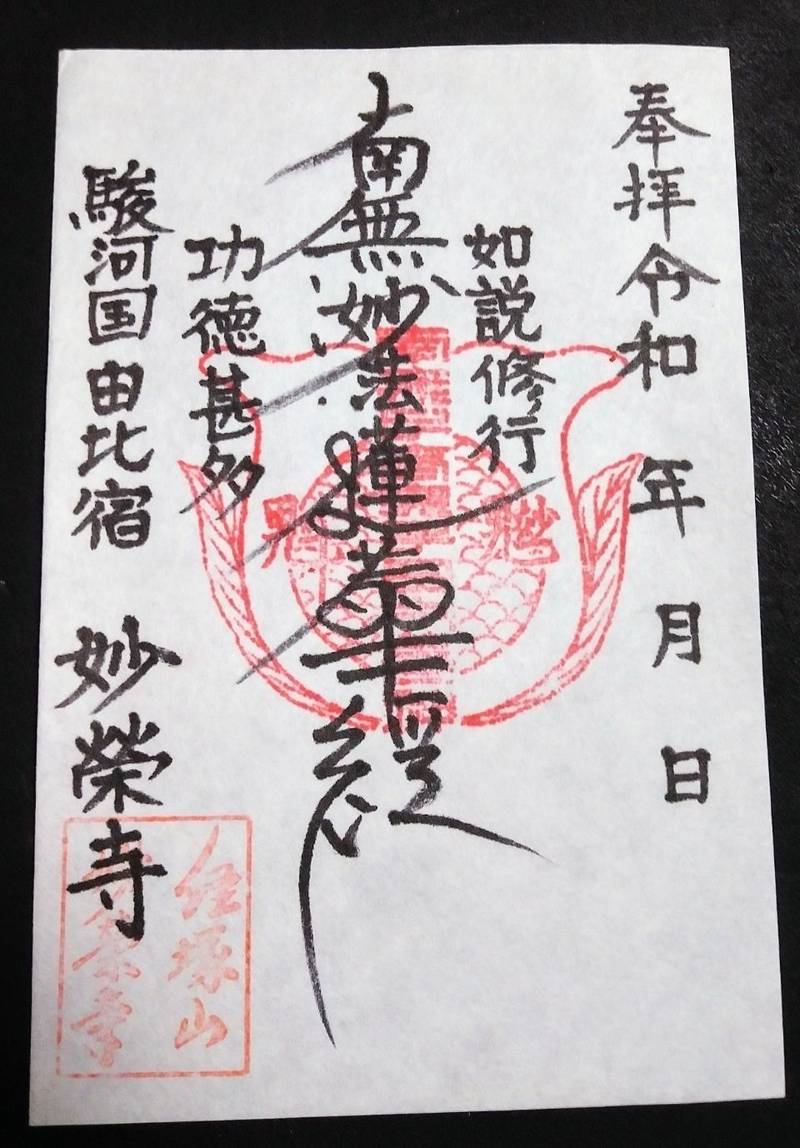 奉拝 令和 年 月 日
如説修行
南無妙法蓮華経
功徳甚多
駿河国由比宿 妙榮寺
経塚山
妙栄寺